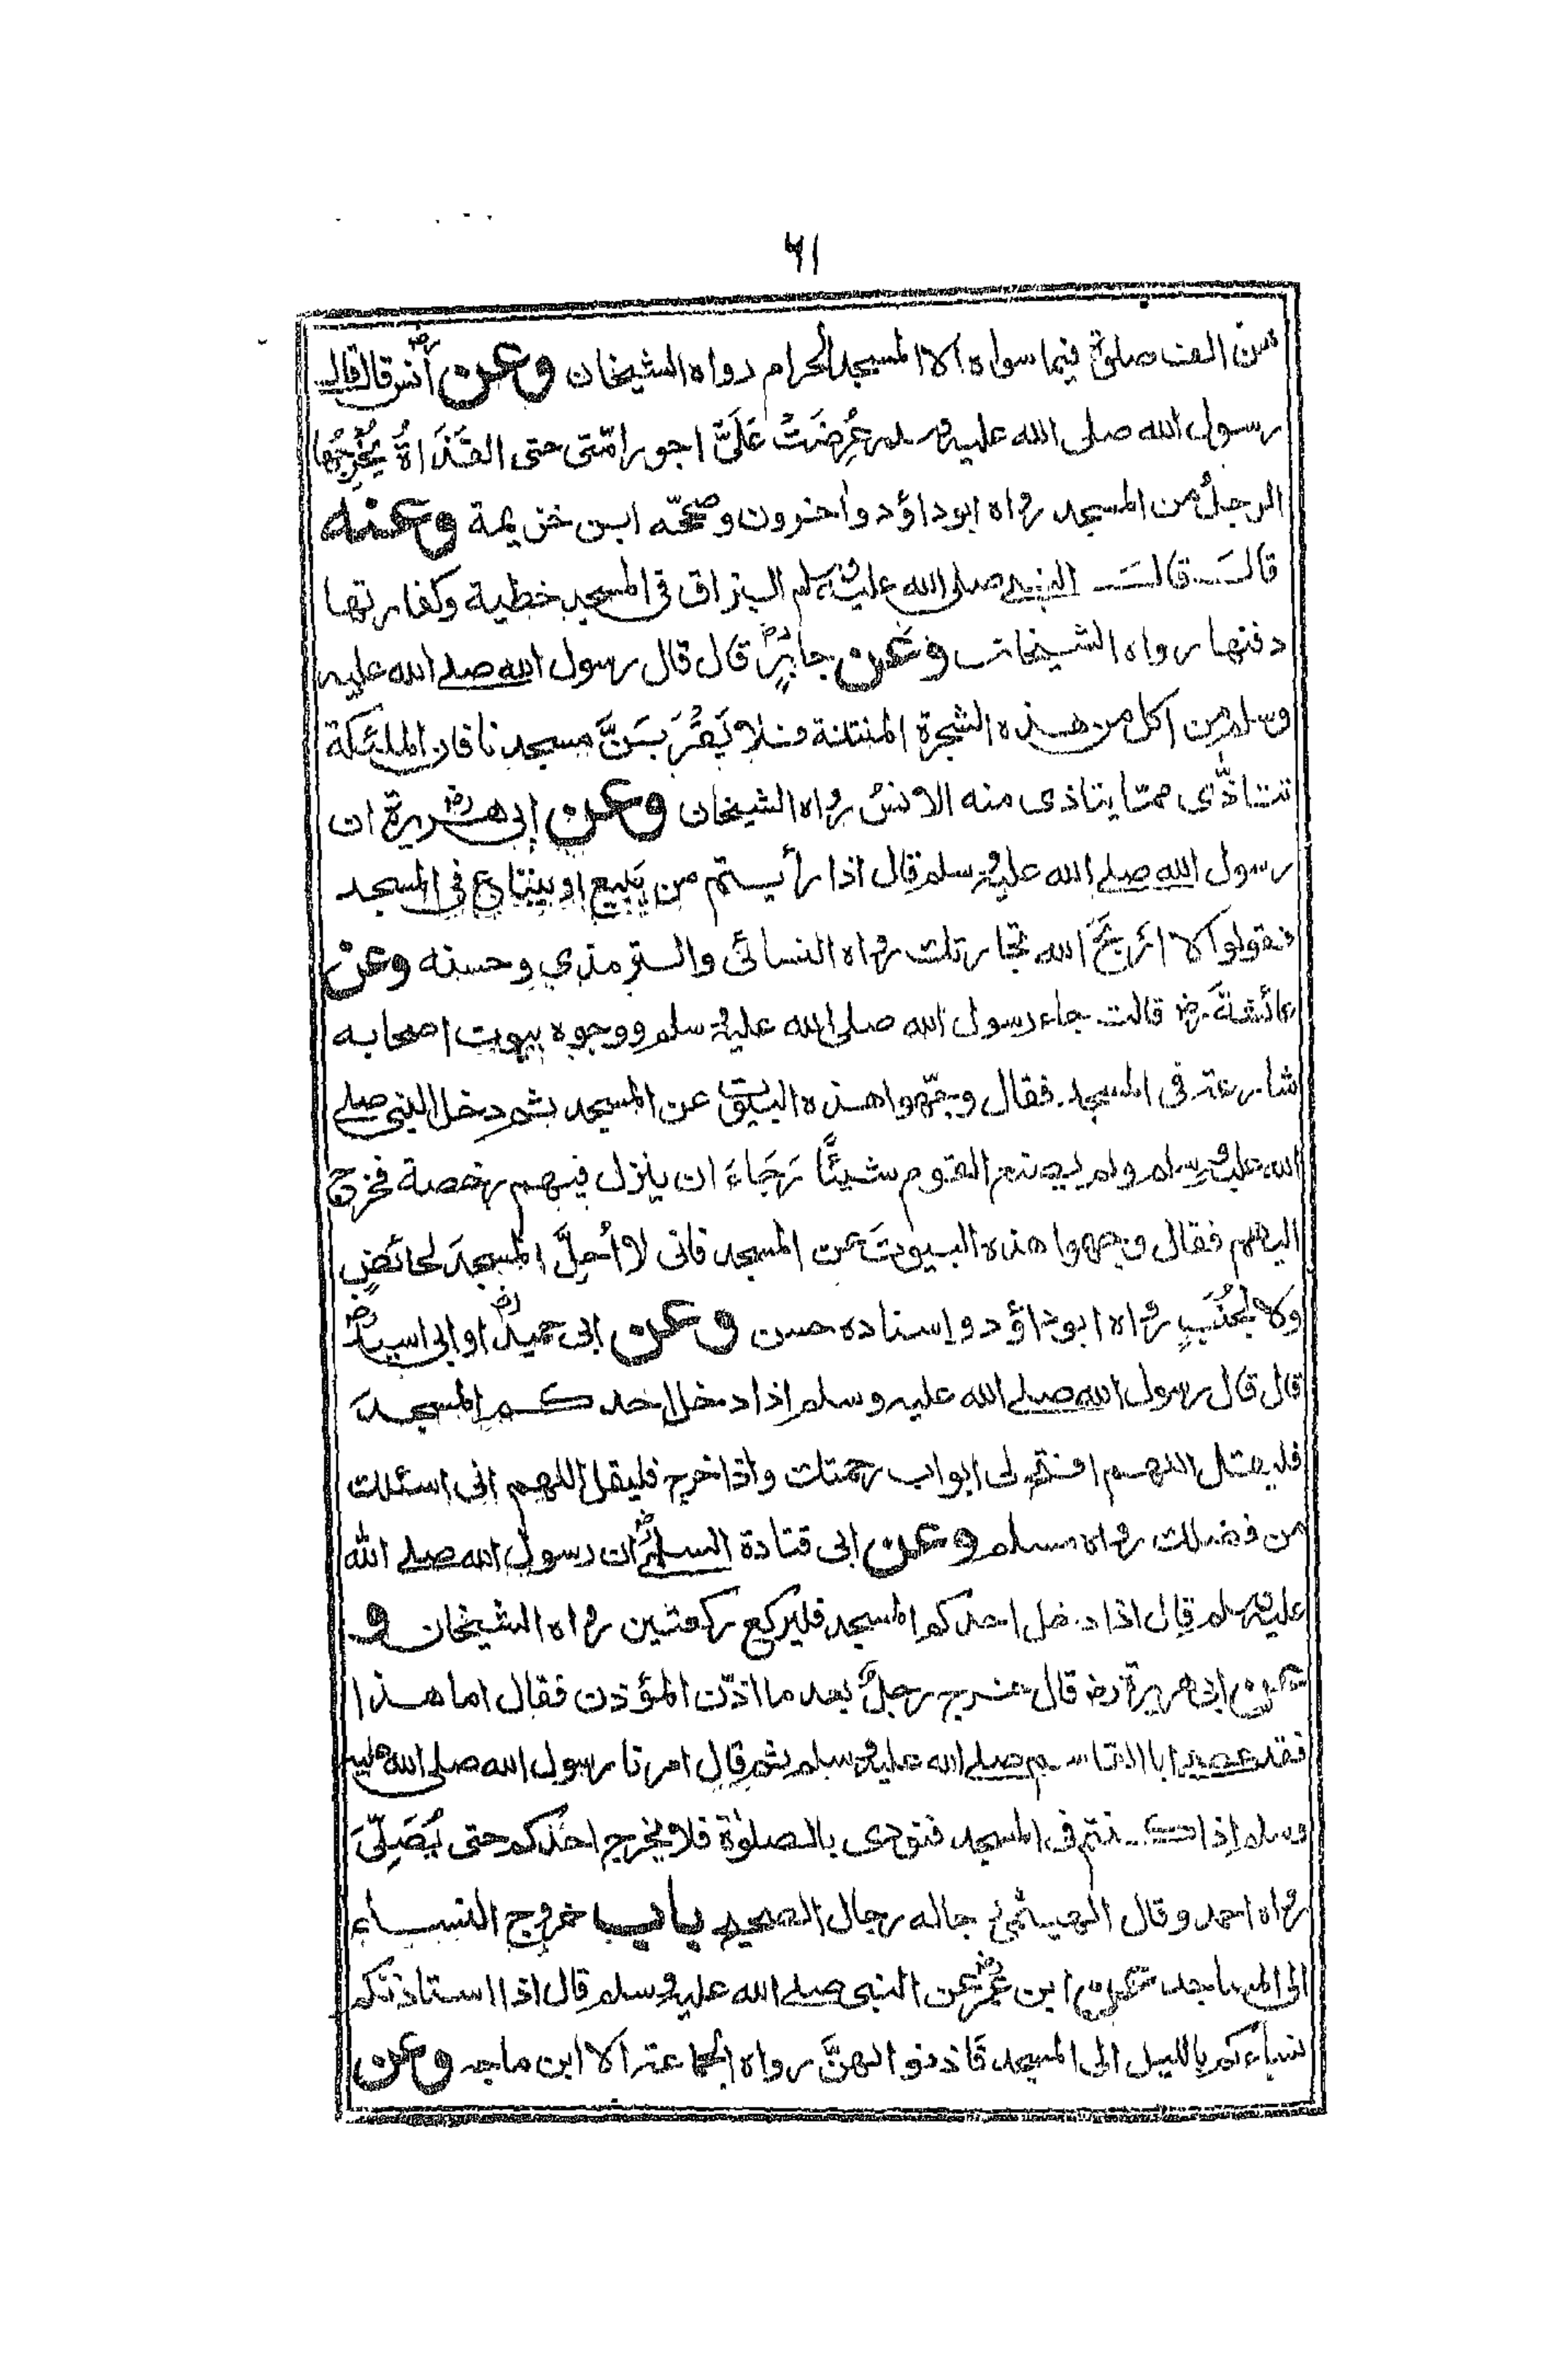 ٦١
من الف صلوة فيما سواه الا المسجد الحرام رواه الشيخان وعن انس رض قال قال
رسول الله صلى الله عليه وسلم عُرِضَتْ عَلَىَّ اجور امّتى حتى القَذَاةُ يُخْرِجُها
الرجلُ من المسجد رواه ابوداؤد واخرون وصحّحه ابن خزيمة وعنه
قال قال النبى صلى الله عليه وسلم البزاق فى المسجد خطية وكفارتها
دفنها رواه الشيخان وعن جابرٍ رض قال قال رسول الله صلے الله عليه
وسلم من اكل من هذه الشجرة المنتنة فلا يَقْرَبَنَّ مسجدنا فان الملئكة
تتاذّى ممّا يتاذى منه الانسُ رواه الشيخان وعن ابى هريرة رض ان
رسول الله صلے الله عليه وسلم قال اذا رأيتم من يَبيع او يبتاع فى المسجد
فقولوا لا اَرْبَحَ الله تجارتك رواه النسائى والترمذي وحسنه وعن
عائشةَ رض قالت جاء رسول الله صلى الله عليه وسلم ووجوه بيوت اصحابه
شارعة فى المسجد فقال وجّهوا هذه البيوت عن المسجد ثم دخل النبى صلے
الله عليه وسلم ولم يصنع القوم شيئًا رَجَاءَ ان ينزل فيهم رخصة فخرج
اليهم فقال وجهوا هذه البيوتَ عن المسجد فانى لا اُحِلُّ المسجدَ لحائضٍ
ولا لجُنُبٍ رواه ابوداؤد واسناده حسن وعن ابى حميد رض او ابى اسيد رض
قال قال رسول الله صلے الله عليه وسلم اذا دخل احدكم المسجدَ
فليقل اللهم افتح لى ابواب رحمتك واذا خرج فليقل اللهم انى اسئلك
من فضلك رواه مسلم وعن ابى قتادة السلمى رض ان رسول الله صلے الله
عليه وسلم قال اذا دخل احدكم المسجد فليركع ركعتين رواه الشيخان و
عن ابى هريرة رض قال خرج رجلٌ بعد ما اذّن المؤذن فقال اما هذا
فقد عصى ابا القاسم صلے الله عليه وسلم ثم قال امرنا رسول الله صلى الله عليه
وسلم اذا كنتم فى المسجد فنودى بالصلوٰة فلا يخرج احدُكم حتى يُصَلِّىَ
رواه احمد وقال الهيثمى رجاله رجال الصحيح باب خروج النساء
الى المساجد عن ابن عمر رض عن النبى صلے الله عليه وسلم قال اذا استاذنكم
نساءكم بالليل الى المسجد فَاذنوا لهنَّ رواه الجماعة الا ابن ماجه وعن